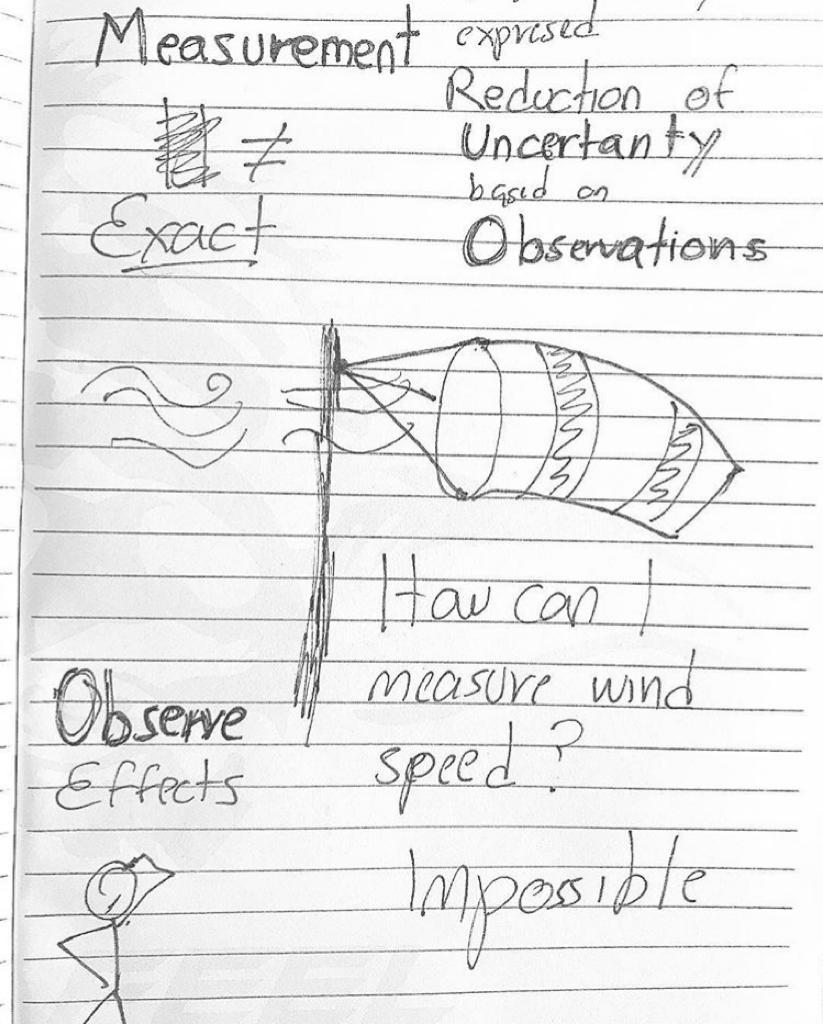 Measurement
≠
Exact
expresed
Reduction of
Uncertanty
based on
Observations
How can I
measure wind
speed?
Impossible
Observe
Effects